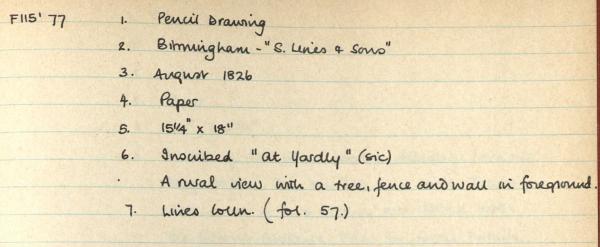 F115' 77 1. Pencil Drawing
2. Birmingham - "S. Lines & Sons"
3. August 1826
4. Paper
5. 15¼" x 18"
6. Inscribed "at Yardly" (sic)
A rural view with a tree, fence and wall in foreground.
7. Lines Colln. (fol. 57.)